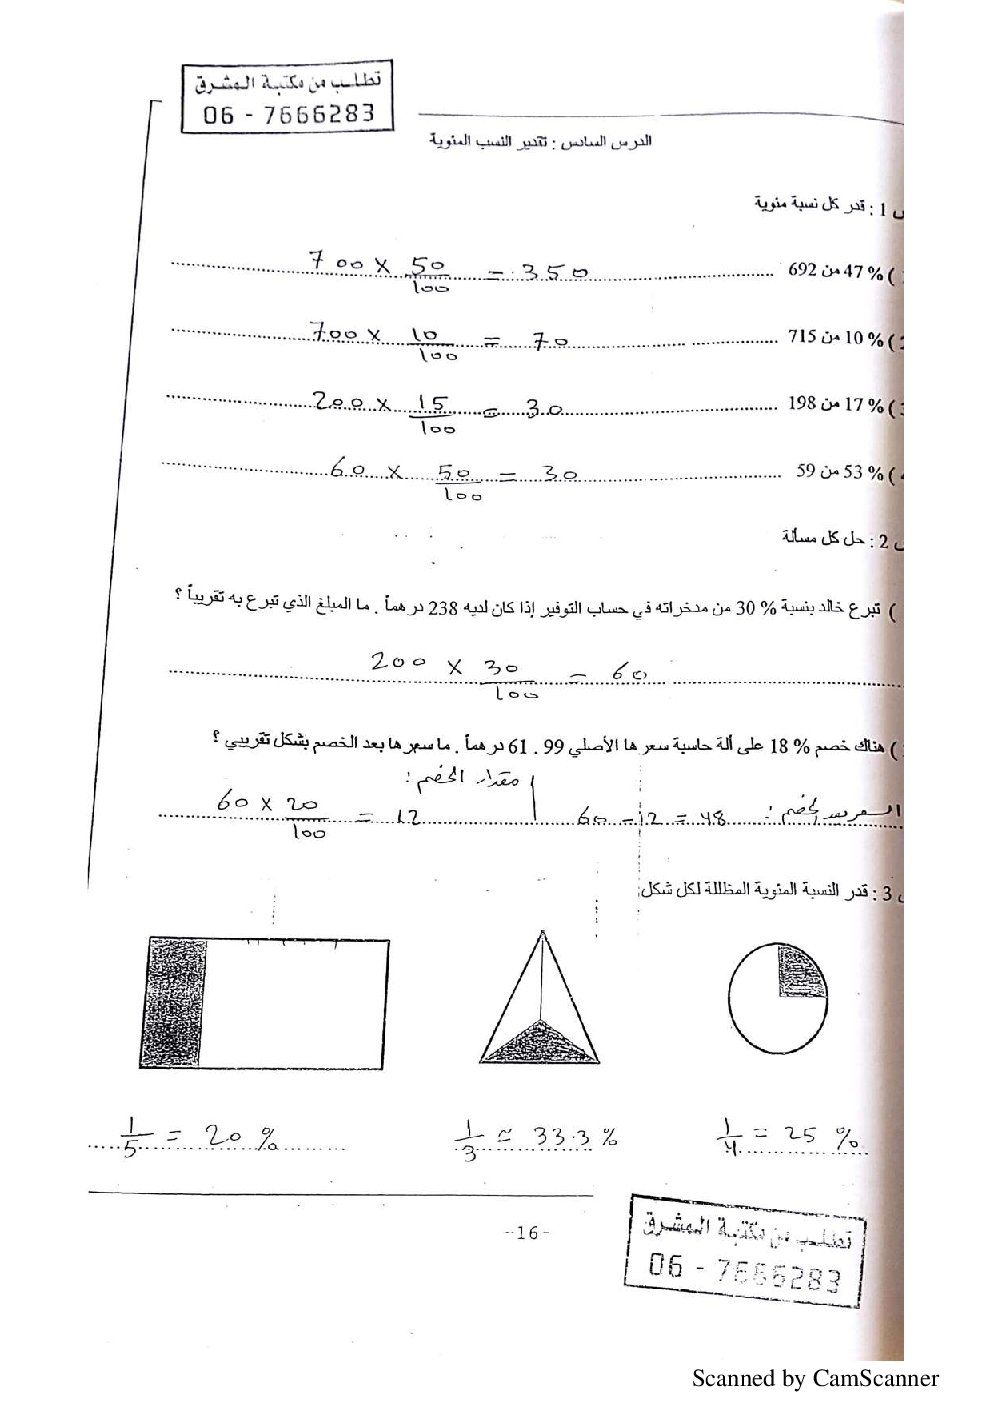 تطلب من مكتبة المشرق
06 - 7666283
الدرس السادس : تقدير النسب المئوية
1 : قدر كل نسبة مئوية
) % 47 من 692 700 × 50/100 = 350
) % 10 من 715 700 × 10/100 = 70
) % 17 من 198 200 × 15/100 = 30
) % 53 من 59 60 × 50/100 = 30
2 : حل كل مسألة
) تبرع خالد بنسبة % 30 من مدخراته في حساب التوفير إذا كان لديه 238 درهماً . ما المبلغ الذي تبرع به تقريباً ؟
200 × 30/100 = 60
) هناك خصم % 18 على ألة حاسبة سعرها الأصلي 99 . 61 درهماً . ما سعرها بعد الخصم بشكل تقريبي ؟
مقدار الخصم :
60 × 20/100 = 12
السعر بعد الخصم : 60 - 12 = 48
3 : قدر النسبة المئوية المظللة لكل شكل
1/4 = 25 %
1/3 ≈ 33.3 %
1/5 = 20 %
-16-
تطلب من مكتبة المشرق
06 - 7666283
Scanned by CamScanner